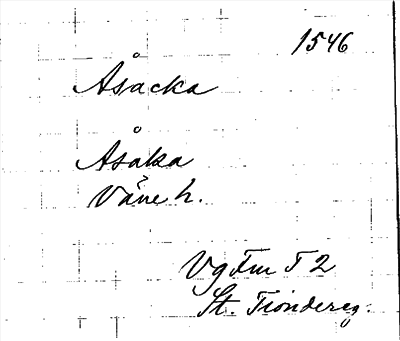 1546
Åsacka
Åsaka
Väne h.
Vg Fm T 2
St. Tiondereg.